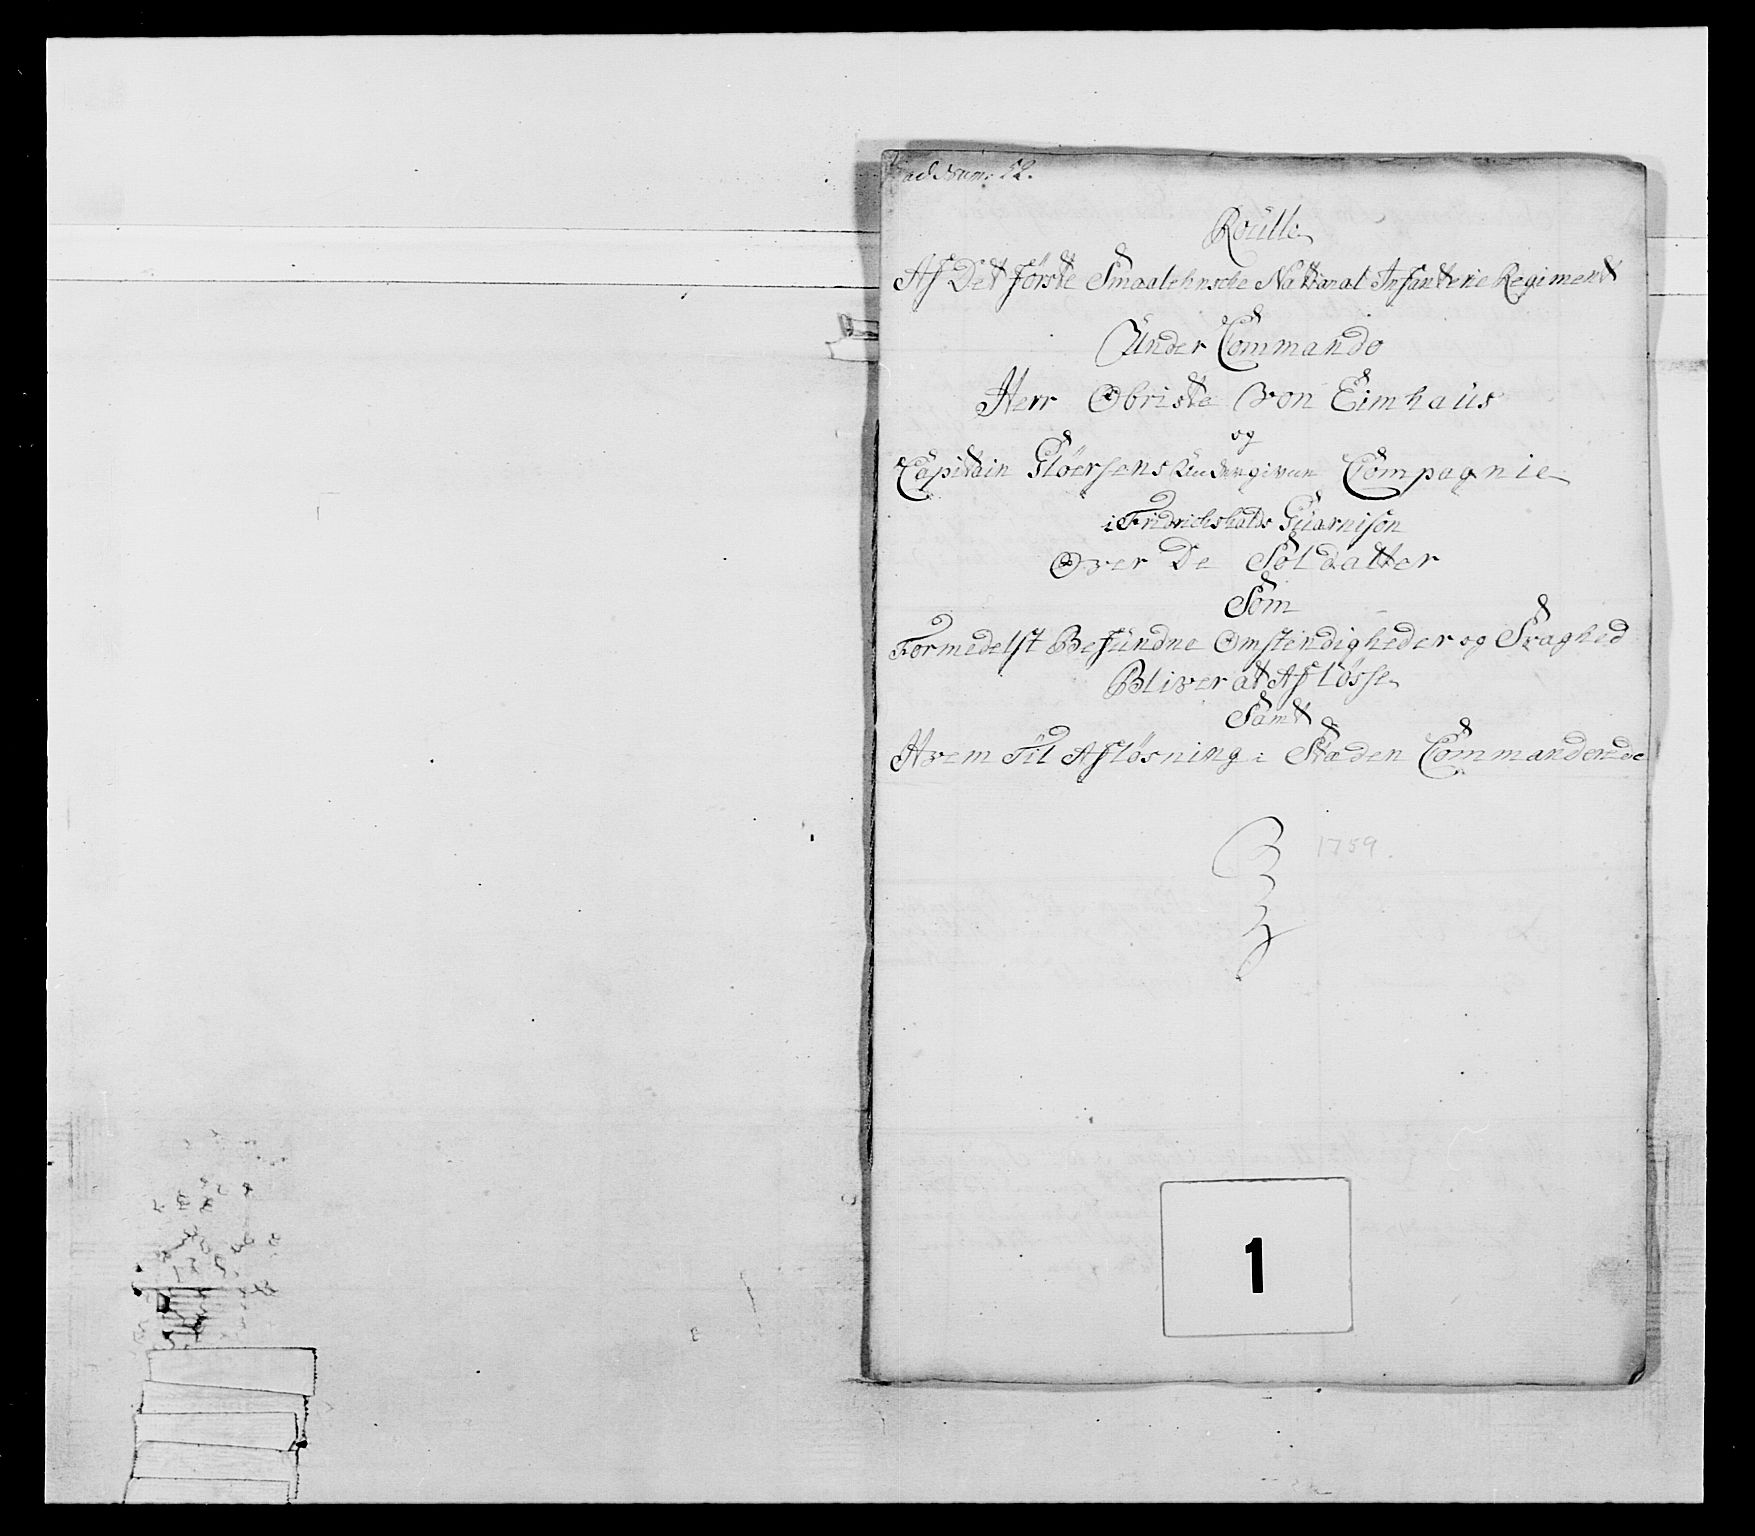 ad Num: 52.
Roulle
Af Det Første Smaalehnsche National Infanterie Regiment
Under Commando
Herr Obriste von Eimhaus
og
Capitain Gløersens Undergivne Compagnie
i Fridrichshalds Guarnison
Over De Soldatter
Som
Formedelst Befundne Omstendigheder og Svaghed
Bliver at Afløsse
Samt
Hvem Til Afløsning i Stæden Commanderede
1759.
1